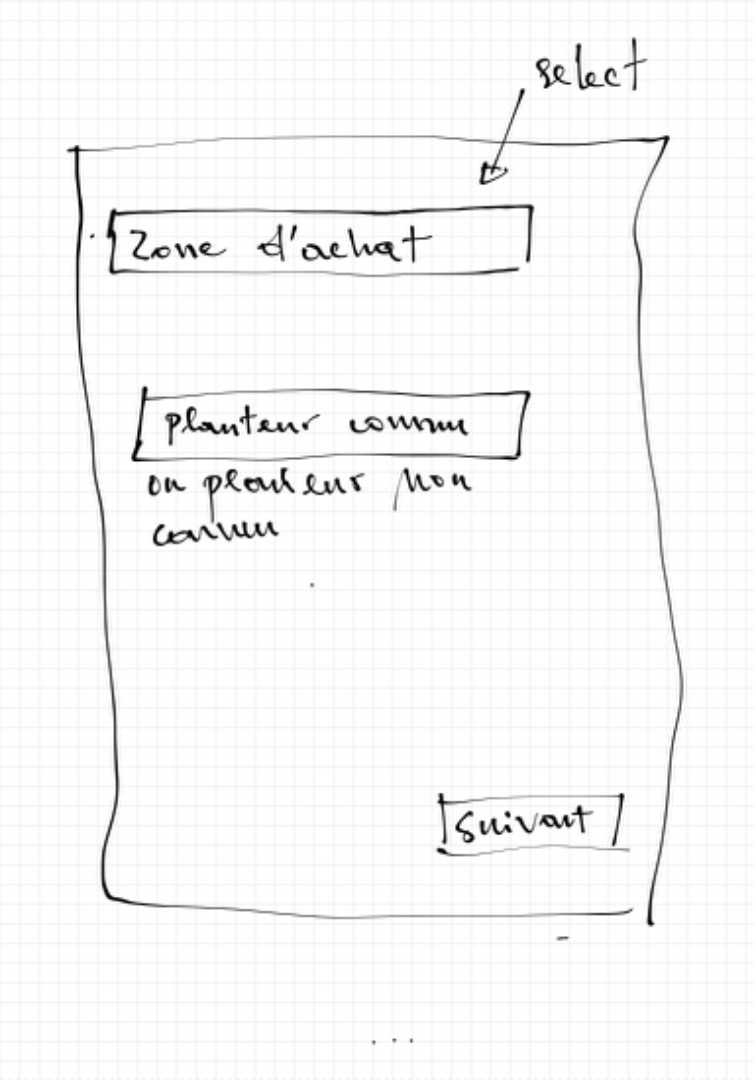 select
Zone d'achat
planteur connu
ou planteur non
connu
Suivant
...